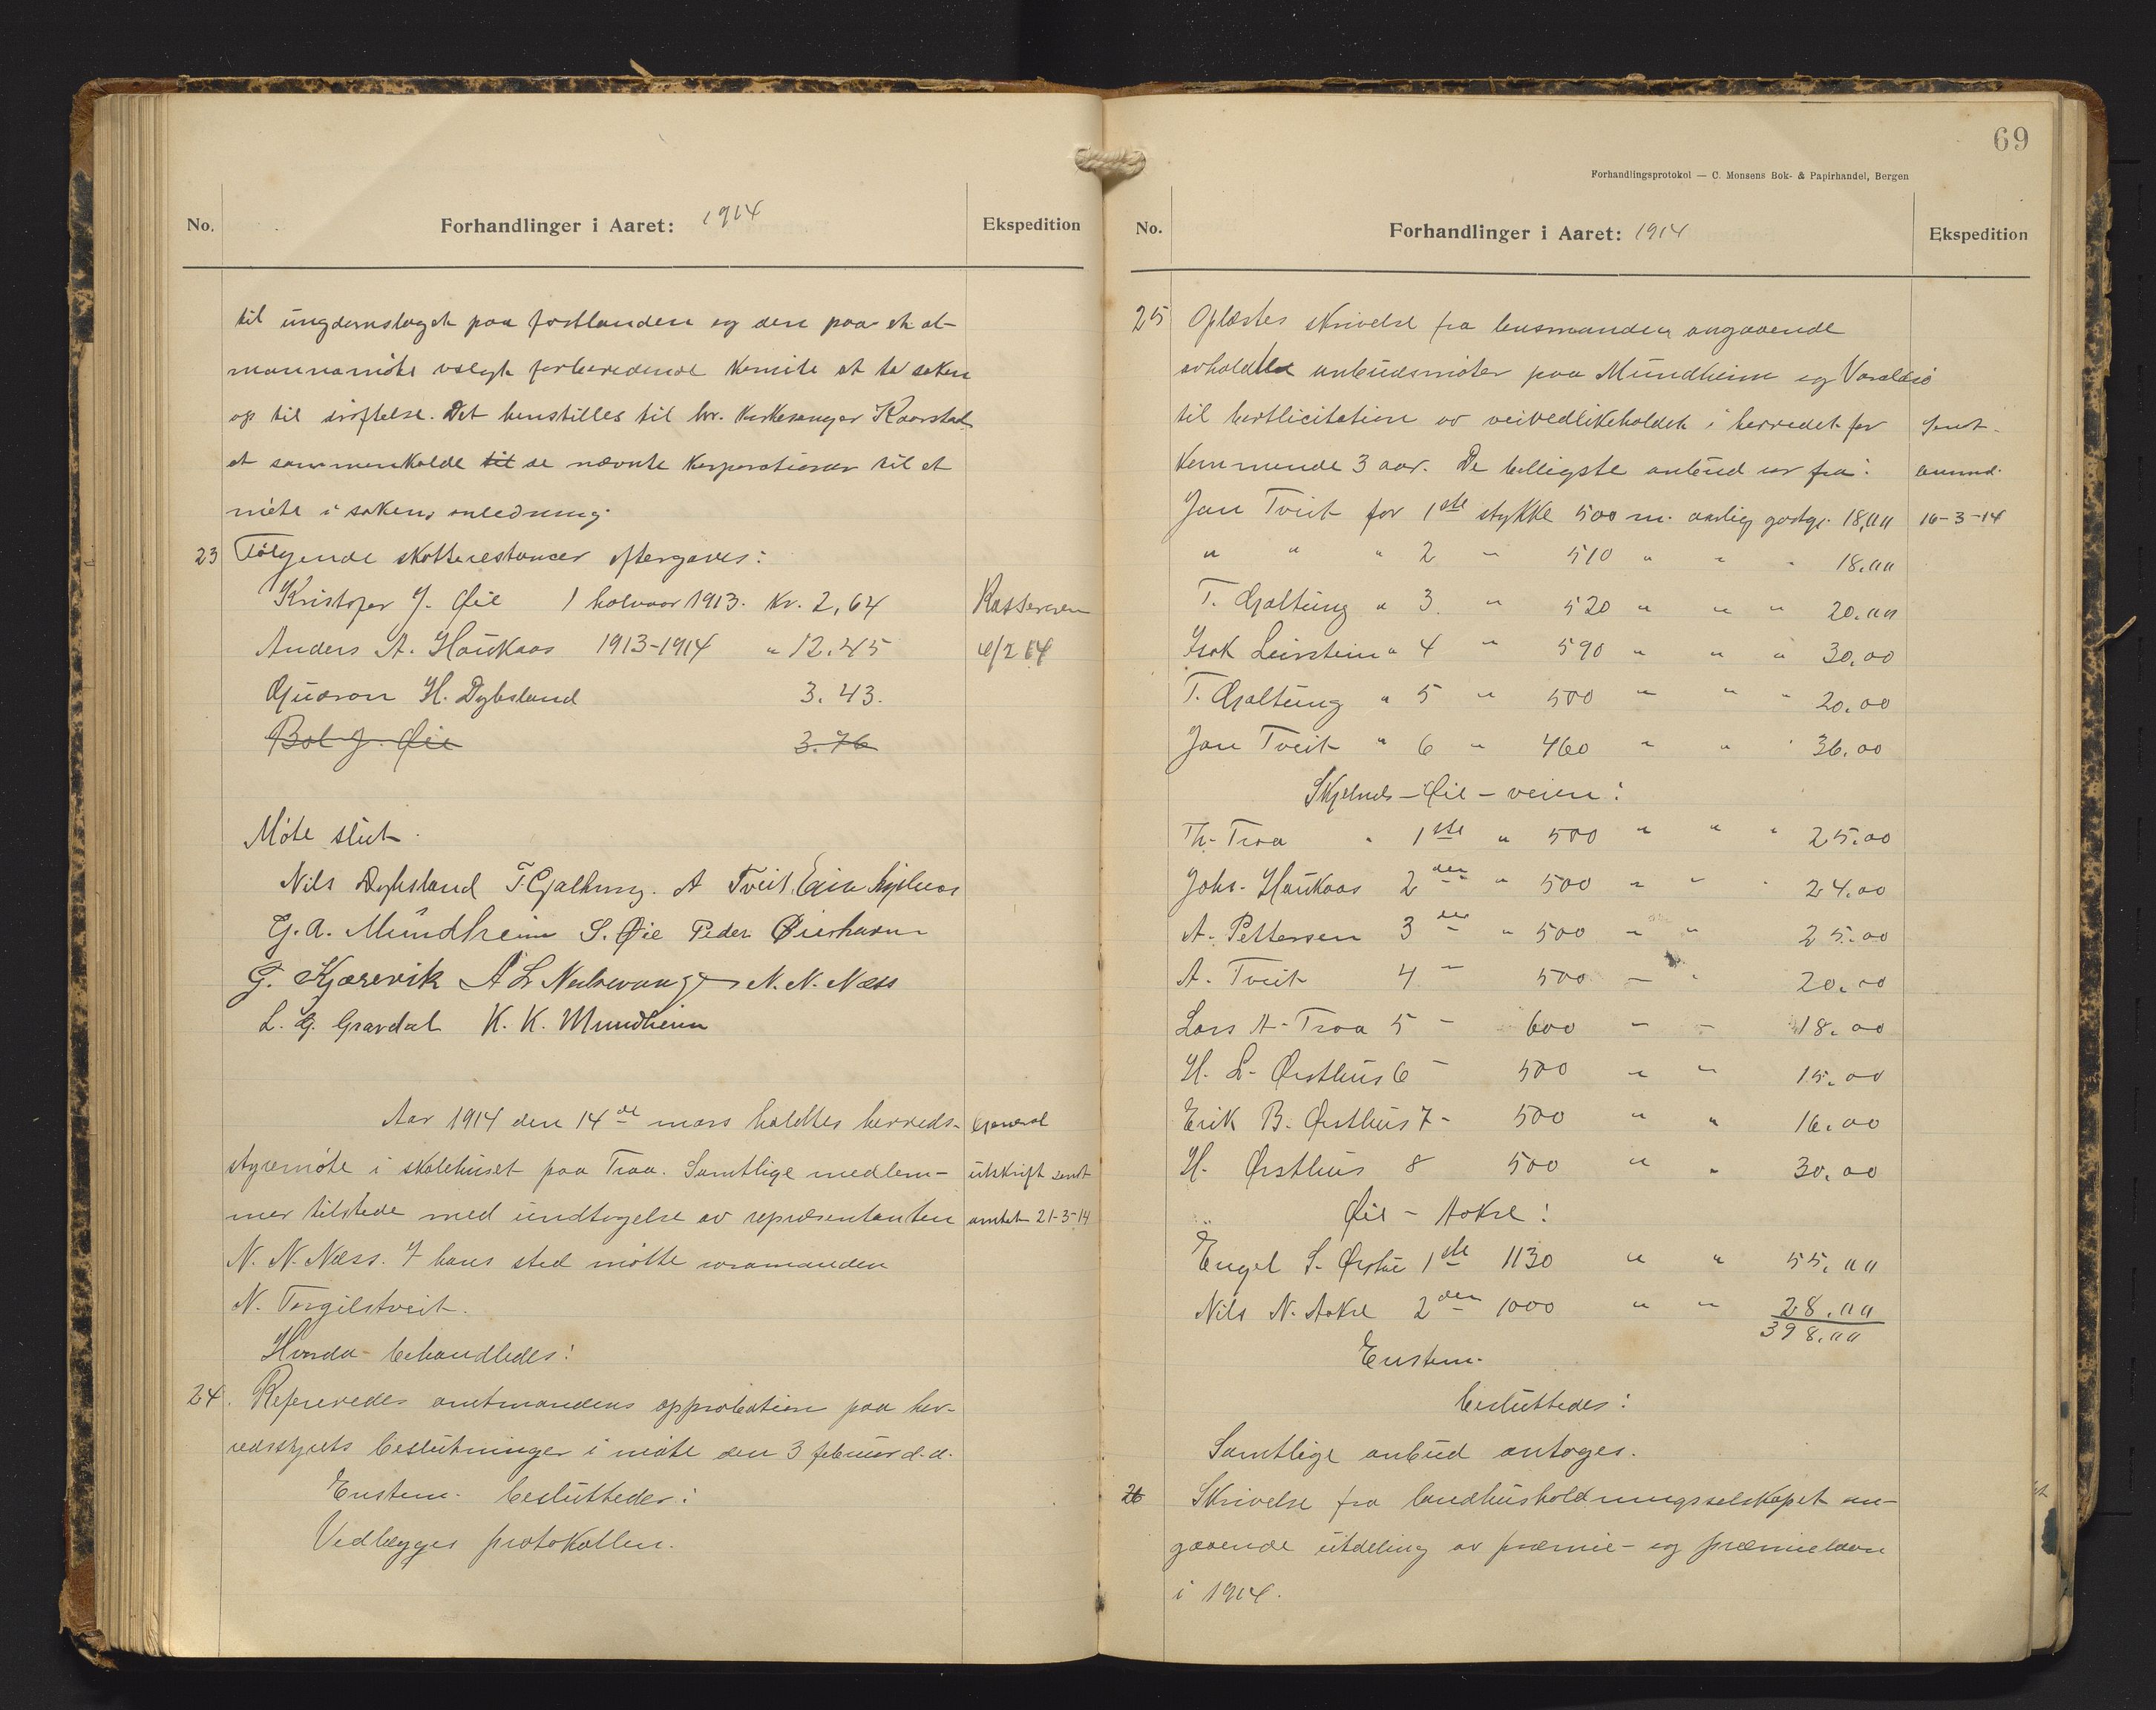 No.
Forhandlinger i Aaret: 1914
Ekspedition
til ungdomslaget paa fastlandet og den paa et al-
mannamøte valgte forberedende komite at ta saken
op til drøftelse. Det henstilles til hr. kirkesanger Kaarstad
at sammenkalde til de nævnte korporationer til et
møte i sakens anledning.
23 Følgende skatterestancer eftergaves:
Kristofer J. Øie 1 halvaar 1913. Kr. 2,64 Kassereren
Anders A. Haukaas 1913-1914 " 12.45 4/2 14
Gudron H. Dybsland 3.43.
Bol J. Øie 3.76
Møte slut.
Nils Dybsland T. Gjaltung. A Tveit.
G. A. Mundheim S. Øie Peder Øierhavn
G. Kjærevik N. N. Næss
L. G. Gravdal K. K. Mundheim
Aar 1914 den 14de mars holdtes herreds- General
styremøte i skolehuset paa Traa. Samtlige medlem- utskrift sendt
mer tilstede med undtagelse av repræsentanten amtet 21-3-14
N. N. Næss. I hans sted møtte varamanden
N. Torgilstveit.
Hvorda behandledes:
24. Refereredes amtmandens approbation paa her-
redsstyrets beslutninger i møte den 3 februar d.a.
Enstem. besluttedes:
Vedlægges protokollen.
69
Forhandlingsprotokol — C. Monsens Bok- & Papirhandel, Bergen
No.
Forhandlinger i Aaret: 1914
Ekspedition
25 Oplæstes skrivelse fra lensmanden angaaende
avholdte anbudsmøter paa Mundheim og Varaldsø
til bortlicitation av veivedlikeholdet i herredet for Sendt
kommende 3 aar. De billigste anbud var fra:
Jon Tveit for 1ste stykke 500 m. aarlig godtgj. 18,00 16-3-14
" " " 2 " 510 " " " 18.00
T. Gjaltung " 3. " 520 " " " 20.00
Isak Leirstein " 4 " 590 " " " 30,00
T. Gjaltung " 5 " 500 " " " 20.00
Jon Tveit " 6 " 460 " " " 36.00
Skjelnes-Øie-veien:
Th. Traa " 1ste " 500 " " " 25.00
Johs. Haukaas 2den " 500 " " " 24.00
A. Pettersen 3de " 500 " " 25.00
A. Tveit 4 " 500 " " 20.00
Lars A. Traa 5 " 600 " " 18.00
H. L. Ørsthus 6 " 500 " " 15.00
Erik B. Ørsthus 7 " 500 " " 16.00
H. Ørsthus 8 500 " " 30.00
Øie - Aakre:
Engel S. 1ste 1130 " " 55.00
Nils N. Aakre 2den 1000 " " 28.00
398.00
Enstem.
besluttedes:
Samtlige anbud antoges.
26 Skrivelse fra landhusholdningsselskapet an-
gaaende utdeling av præmie- og præmielaan
i 1914.